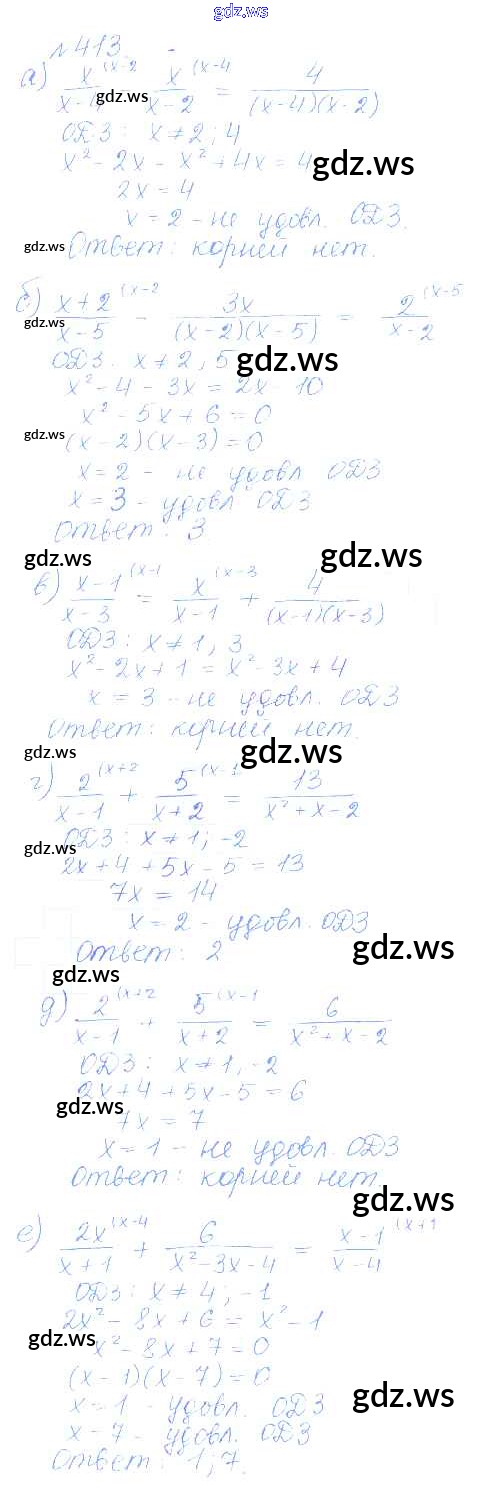 gdz.ws
№ 413
а) x(x-2 / x-4 - x(x-4 / x-2 = 4 / (x-4)(x-2)
gdz.ws
ОДЗ: x ≠ 2; 4
x² - 2x - x² + 4x = 4
gdz.ws
2x = 4
x = 2 - не удовл. ОДЗ.
gdz.ws
Ответ: корней нет.
б) x+2(x-2 / x-5 - 3x / (x-2)(x-5) = 2(x-5 / x-2
gdz.ws
ОДЗ. x ≠ 2, 5
gdz.ws
x² - 4 - 3x = 2x 10
x² - 5x + 6 = 0
gdz.ws
(x-2)(x-3) = 0
x = 2 - не удовл ОДЗ
x = 3 - удовл ОДЗ
Ответ: 3
gdz.ws
gdz.ws
в) x-1(x-1 / x-3 = x(x-3 / x-1 + 4 / (x-1)(x-3)
ОДЗ: x ≠ 1, 3
x² - 2x + 1 = x² - 3x + 4
x = 3 - не удовл. ОДЗ
Ответ: корней нет.
gdz.ws
gdz.ws
г) 2(x+2 / x-1 + 5(x-1 / x+2 = 13 / x²+x-2
ОДЗ: x ≠ 1; -2
gdz.ws
2x + 4 + 5x - 5 = 13
7x = 14
x = 2 - удовл. ОДЗ
Ответ: 2
gdz.ws
gdz.ws
д) 2(x+2 / x-1 + 5(x-1 / x+2 = 6 / x²+x-2
ОДЗ: x ≠ 1, -2
2x + 4 + 5x - 5 = 6
gdz.ws
7x = 7
x = 1 - не удовл. ОДЗ
Ответ: корней нет.
gdz.ws
е) 2x(x-4 / x+1 + 6 / x²-3x-4 = x-1(x+1 / x-4
ОДЗ: x ≠ 4; -1
2x² - 8x + 6 = x² - 1
gdz.ws
x² - 8x + 7 = 0
(x-1)(x-7) = 0
gdz.ws
x = 1 - удовл. ОДЗ
x - 7 - удовл. ОДЗ
Ответ: 1; 7.